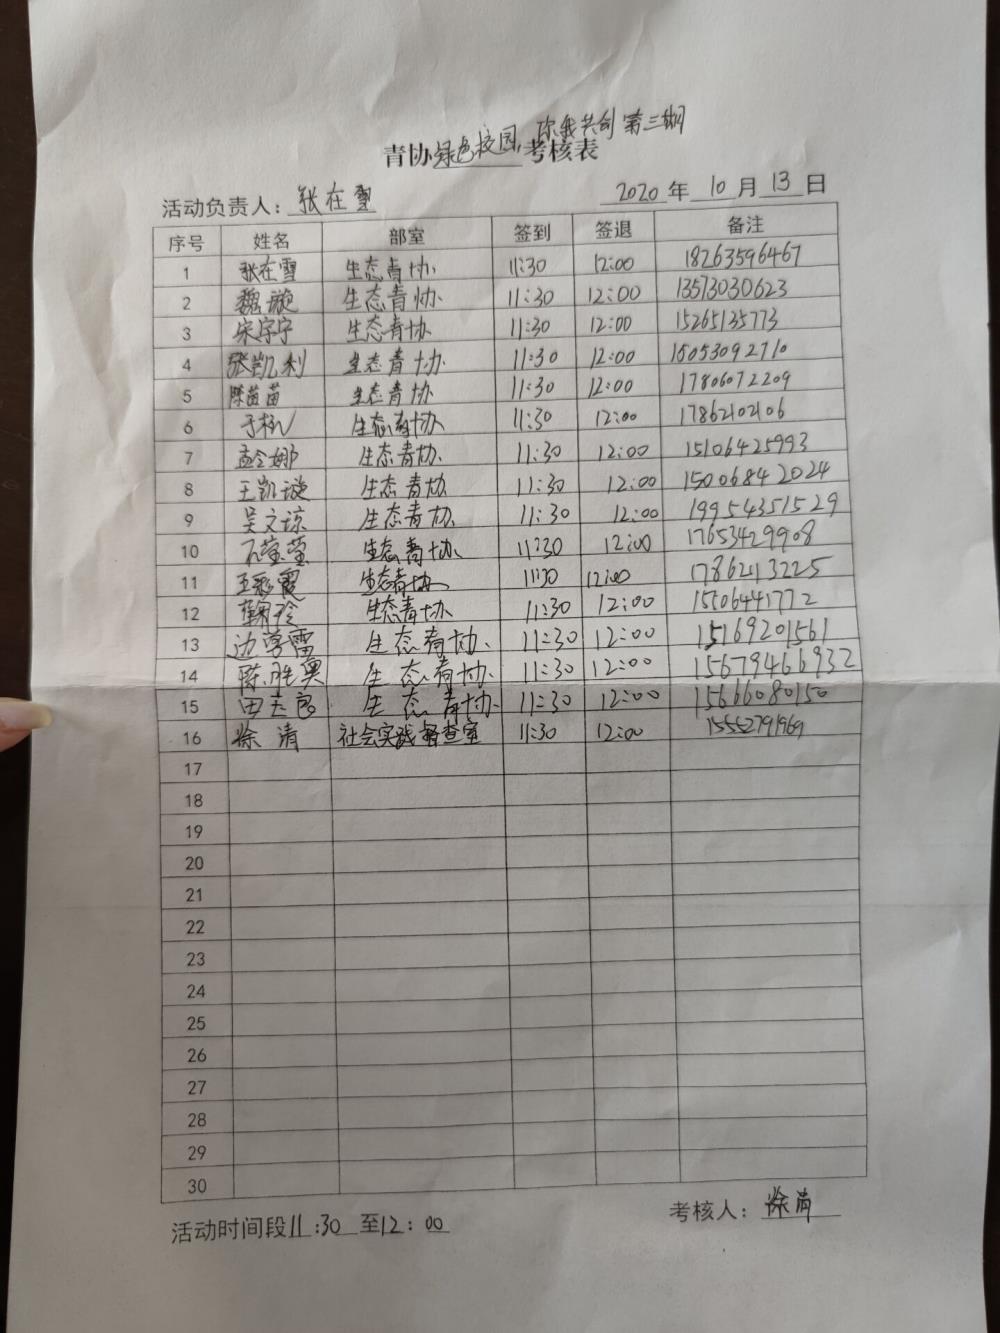 青协绿色校园,你我共创 第三期考核表
活动负责人：张在雪 2020年10月13日
序号 姓名 部室 签到 签退 备注
1 张在雪 生态青协 11:30 12:00 18263596467
2 魏璇 生态青协 11:30 12:00 13573030623
3 宋宇宁 生态青协 11:30 12:00 15265135773
4 张凯利 生态青协 11:30 12:00 15053092710
5 陈苗苗 生态青协 11:30 12:00 17806072209
6 生态青协 11:30 12:00 17862102106
7 孟令娜 生态青协 11:30 12:00 15106425993
8 王凯璇 生态青协 11:30 12:00 15006842024
9 吴文琼 生态青协 11:30 12:00 19954351529
10 石莹莹 生态青协 11:30 12:00 17653429908
11 王彩霞 生态青协 11:30 12:00 17862113225
12 鞠玲 生态青协 11:30 12:00 15064441772
13 边雪雷 生态青协 11:30 12:00 15169201561
14 陈胜奥 生态青协 11:30 12:00 15679466932
15 生态青协 11:30 12:00 15666080150
16 徐清 社会实践督查室 11:30 12:00 15552791969
17
18
19
20
21
22
23
24
25
26
27
28
29
30
活动时间段11:30至12:00 考核人：徐清